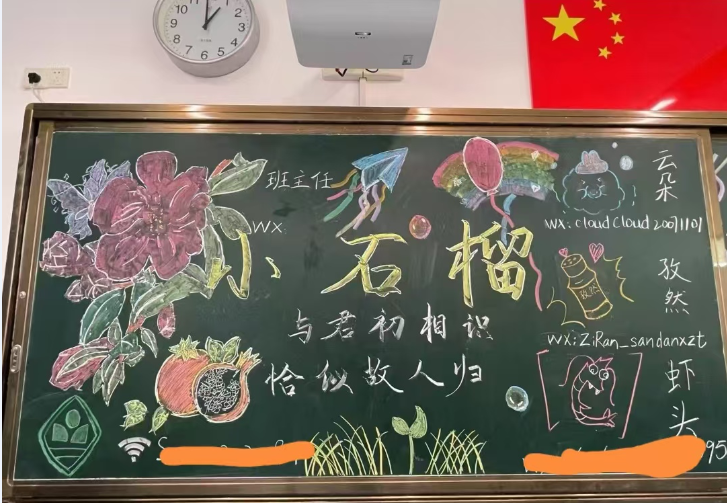 班主任
WX:
小石榴
与君初相识
恰似故人归
云朵
WX: cloudcloud20071101
孜然
WX: ZiRan_sandanxzt
虾头
95